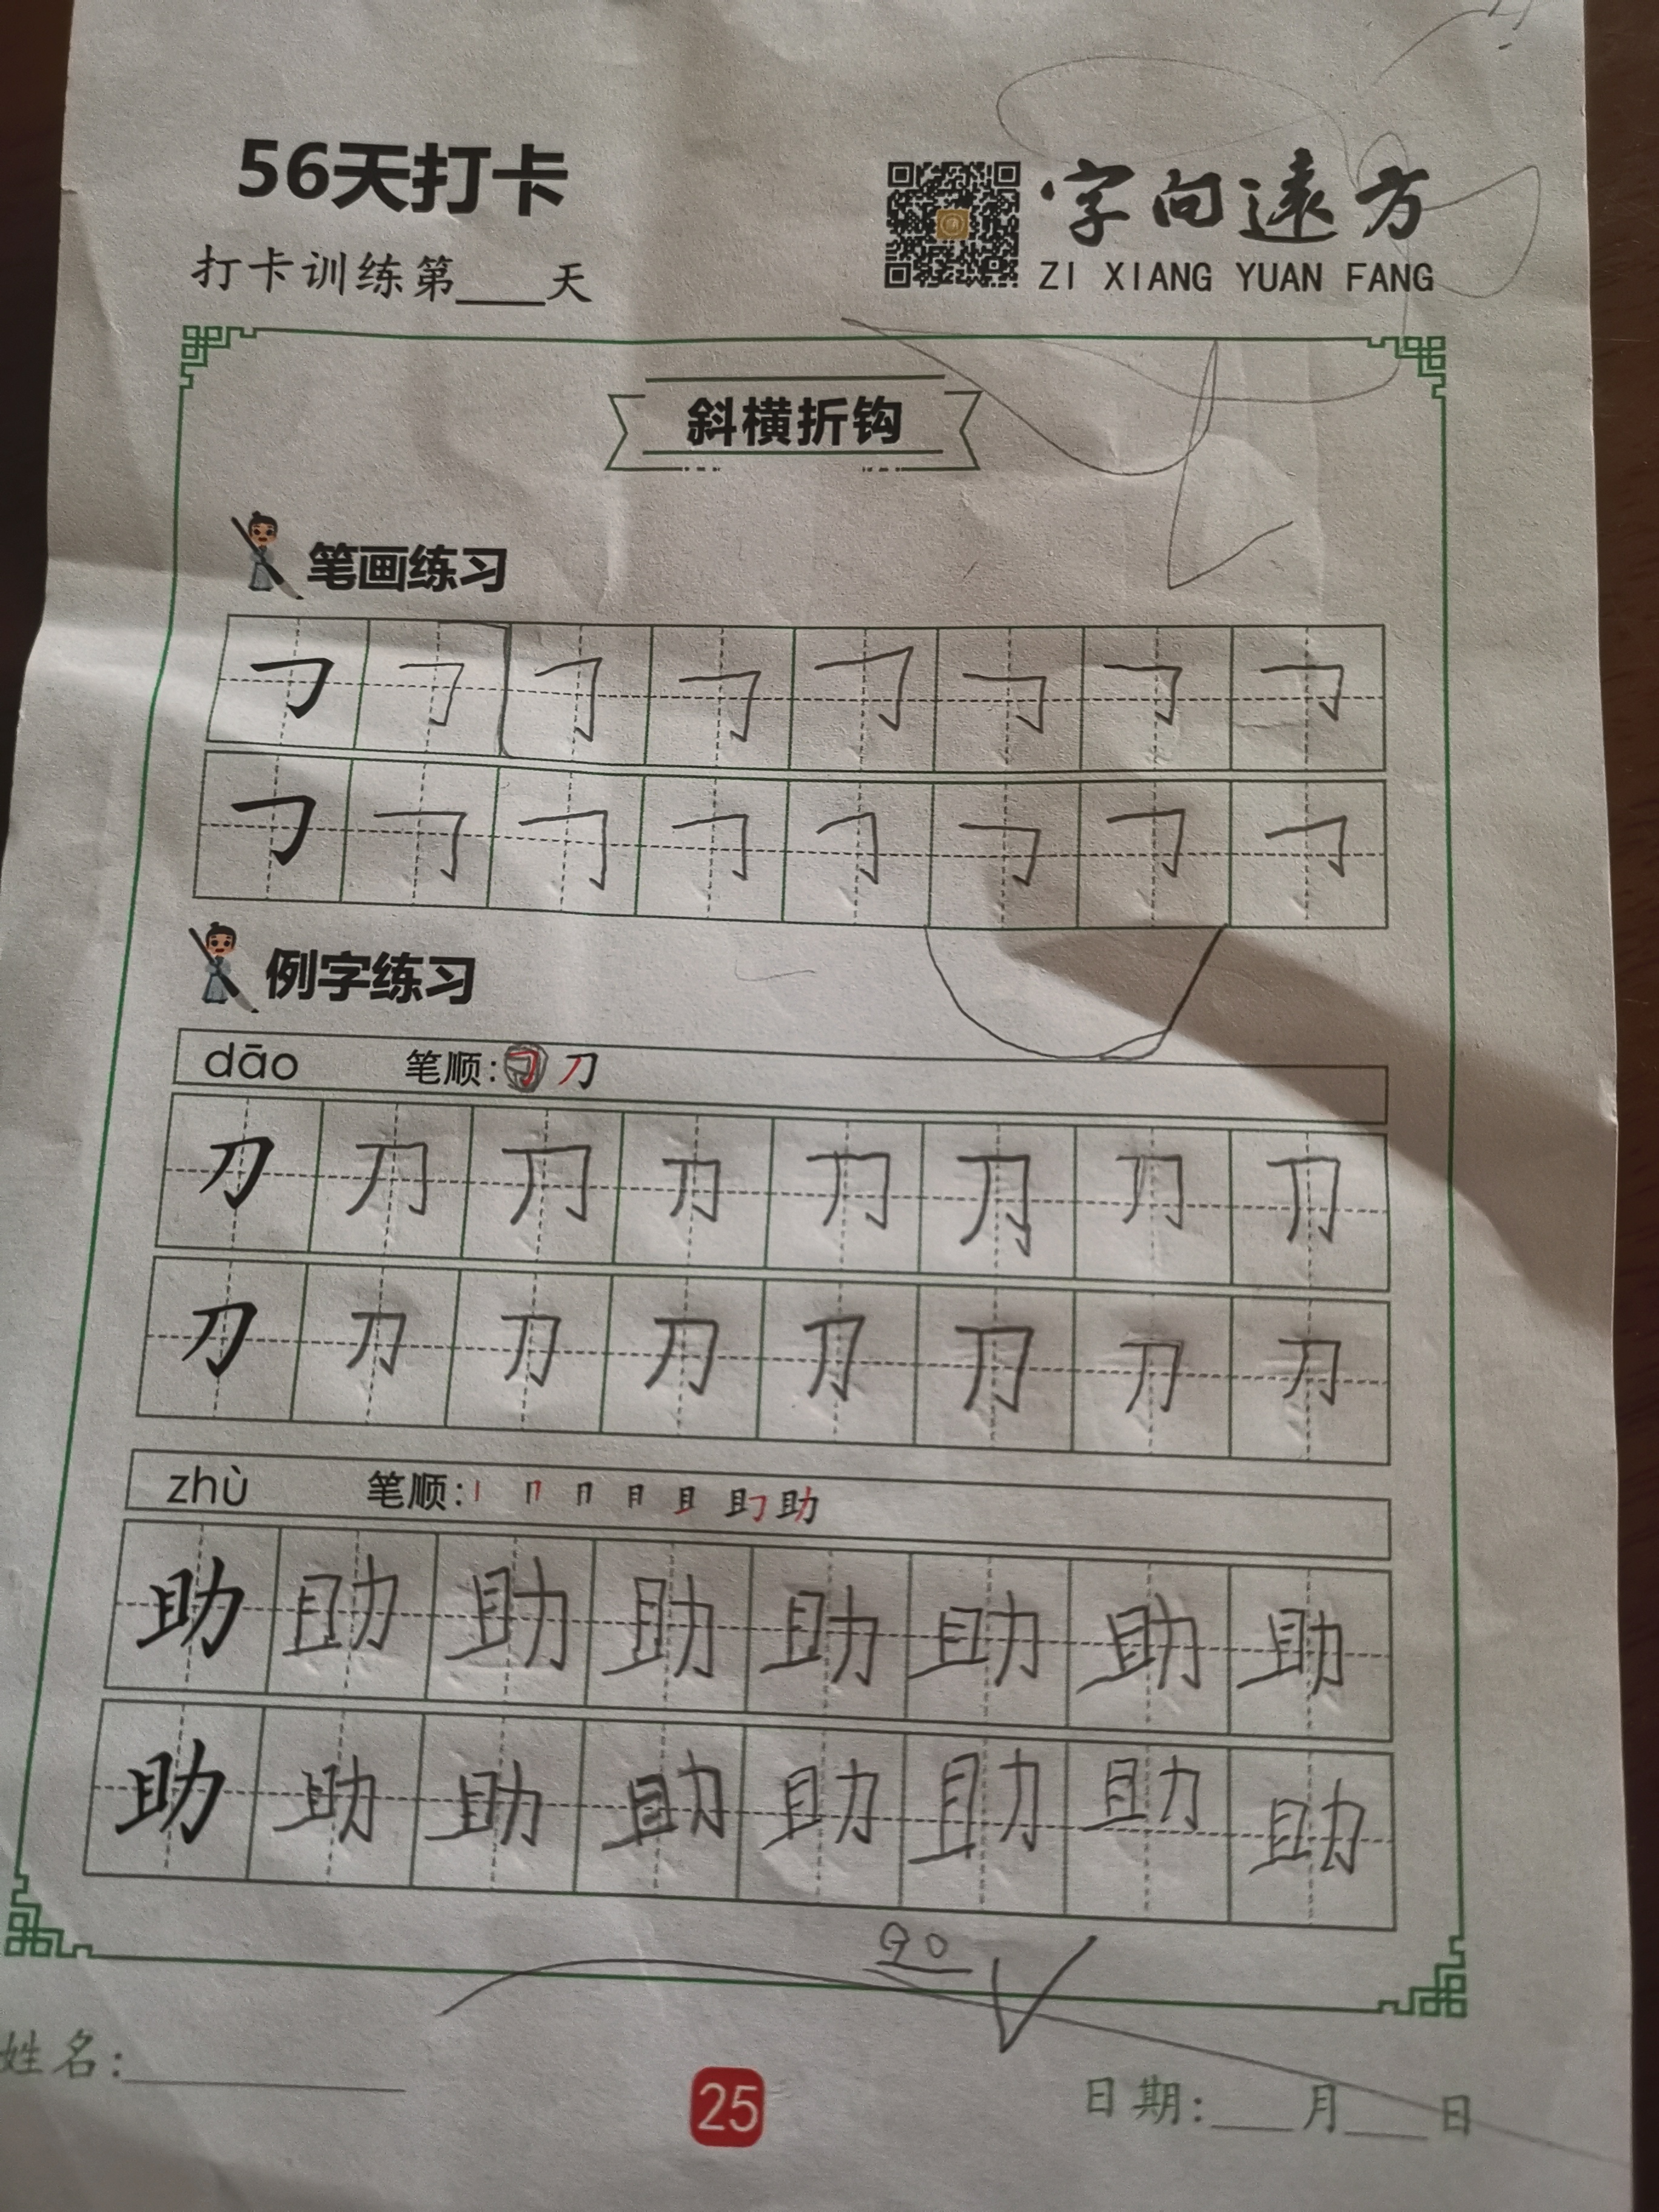 56天打卡
打卡训练第____天
字向遠方
ZI XIANG YUAN FANG
斜横折钩
笔画练习
㇆ ㇆ ㇆ ㇆ ㇆ ㇆ ㇆ ㇆
㇆ ㇆ ㇆ ㇆ ㇆ ㇆ ㇆ ㇆
例字练习
dāo 笔顺: ㇆ 刀
刀 刀 刀 刀 刀 刀 刀 刀
刀 刀 刀 刀 刀 刀 刀 刀
zhù 笔顺: 丨 冂 冃 月 且 助
助 助 助 助 助 助 助 助
助 助 助 助 助 助 助 助
90
姓名:
25
日期:___月___日